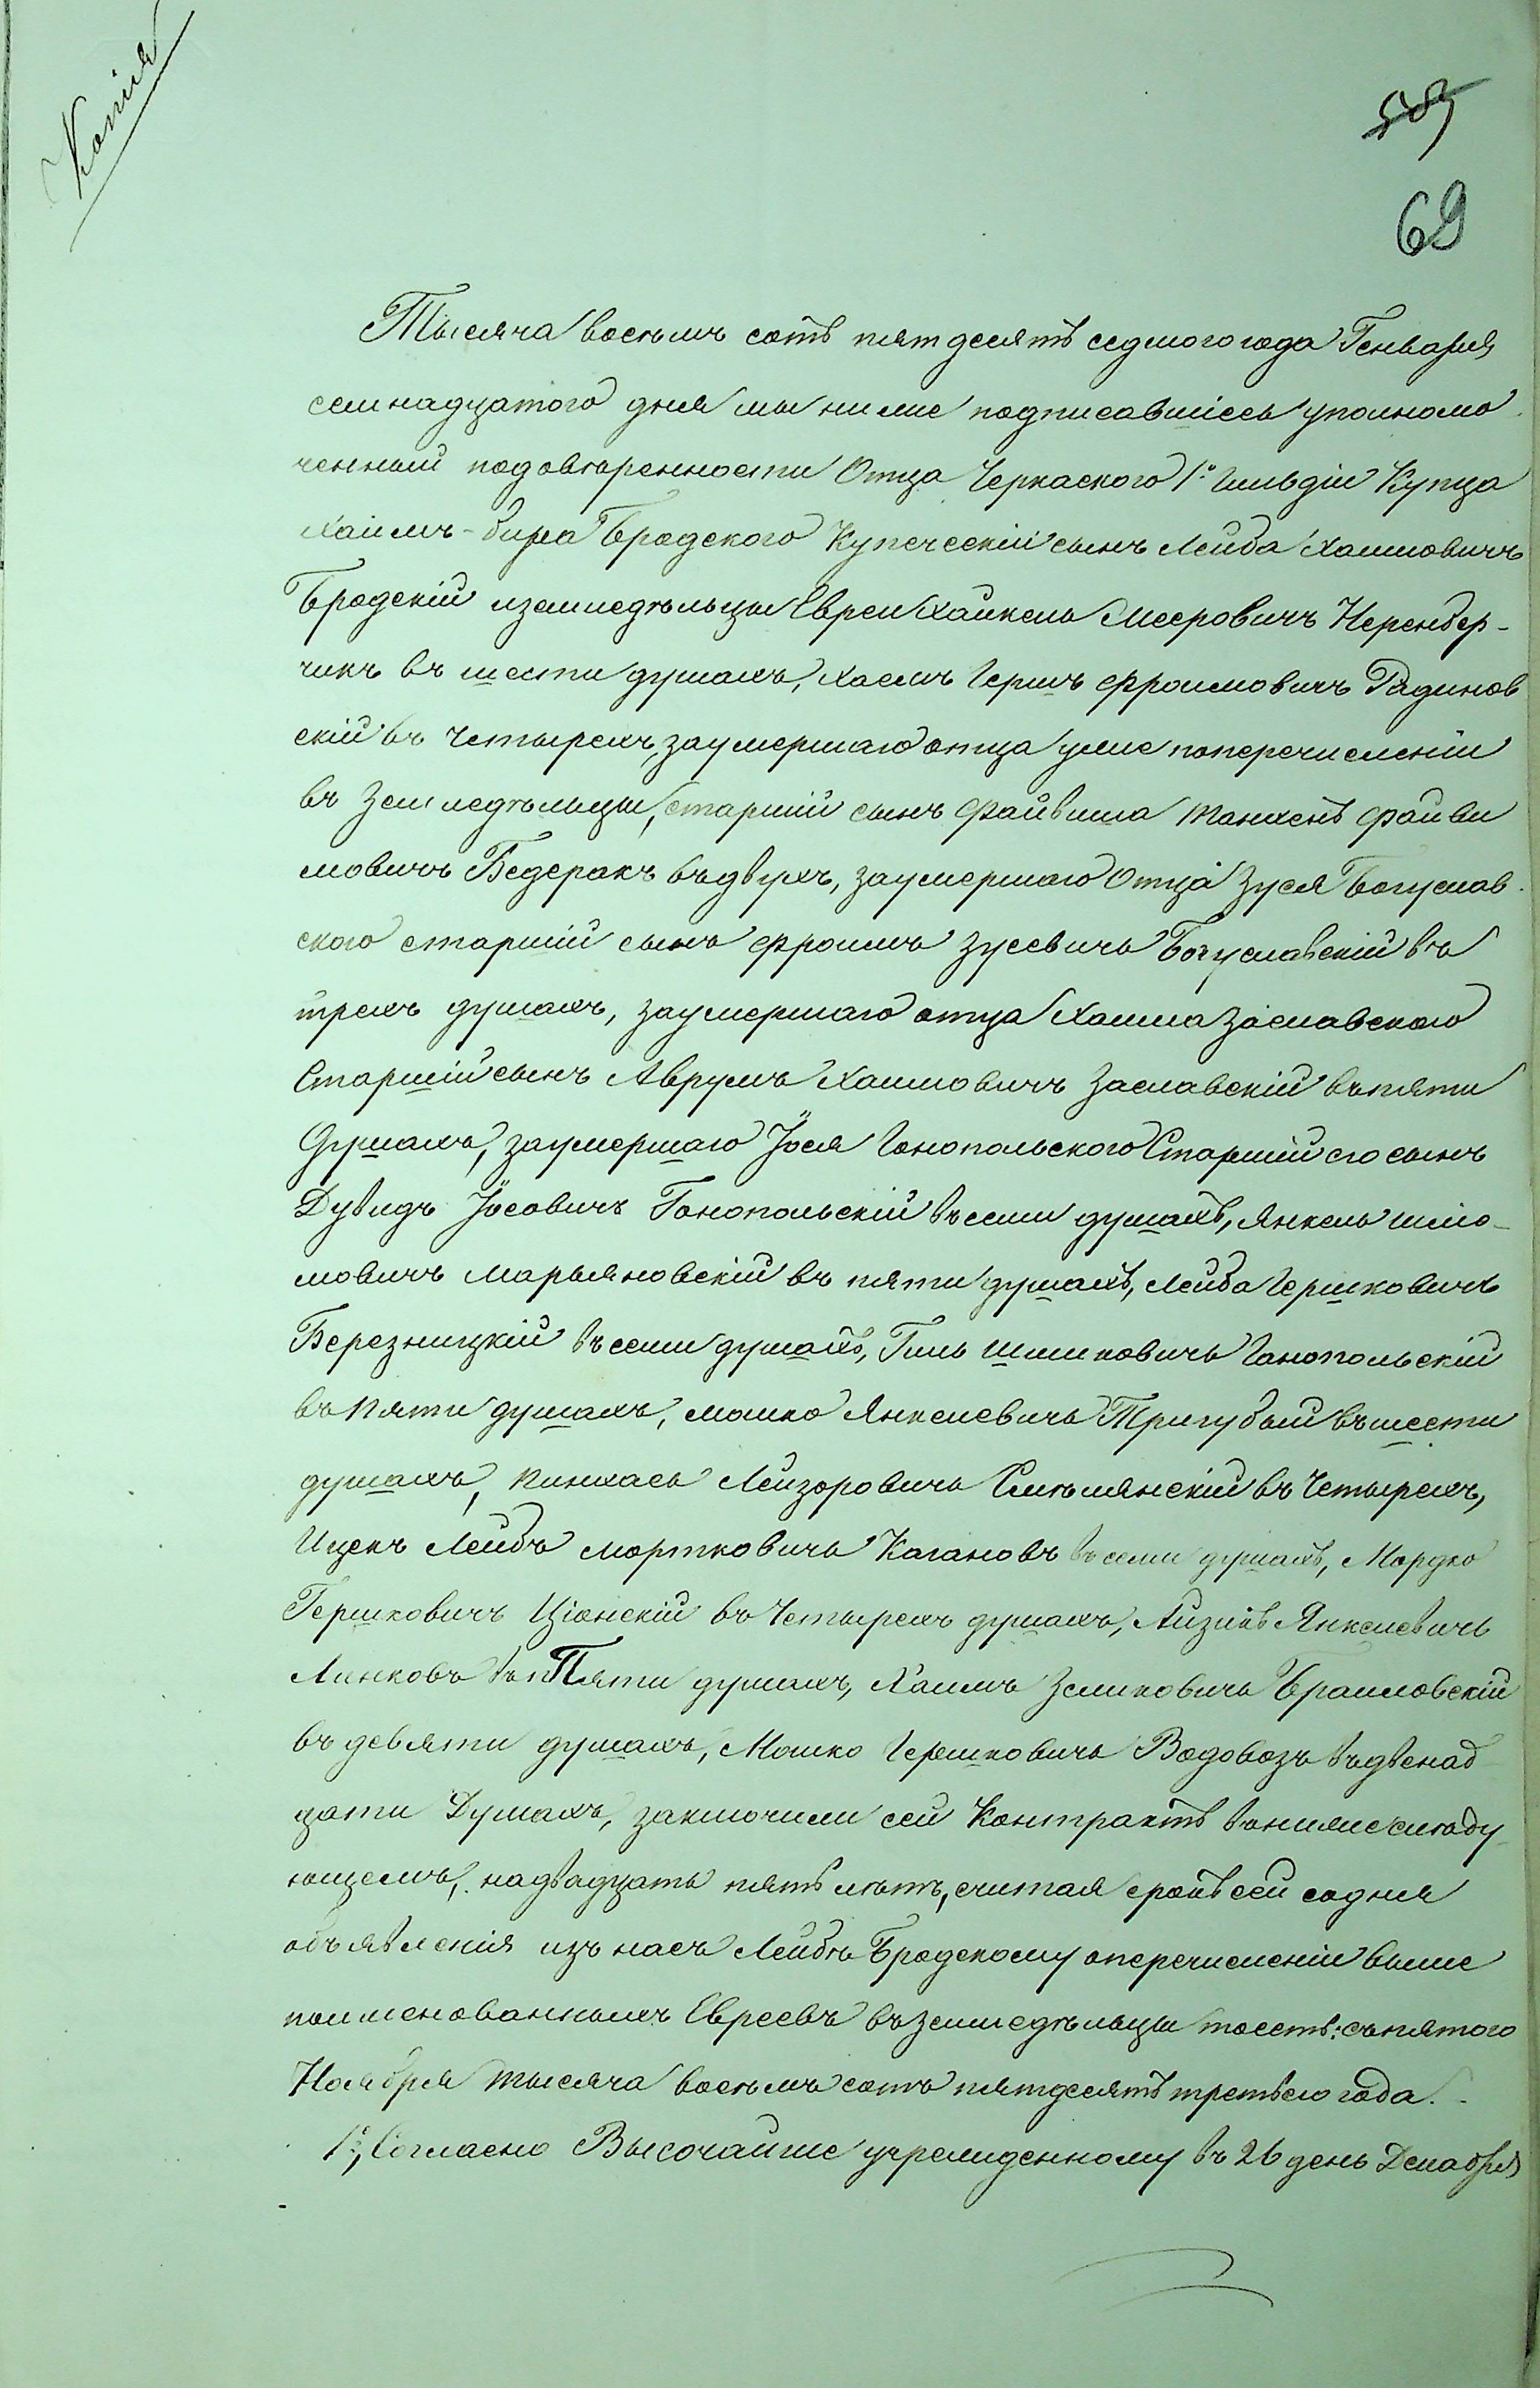 Копія
69
Тысяча восемь сотъ пятдесятъ седмого года Генваря
семнадцатого дня мы ниже подписавшіесь уполномо
ченный подовѣренности Отца Черкаского 1й Гильдіи Купца
Хаимъ-бира Бродского Купеческій сынъ Лейба Хаимовичъ
Бродскій и земледѣльцы Евреи Хаикель Мееровичъ Неренбер-
чикъ въ шести душахъ, Хаемъ Гершъ Фроимовичъ Радинов
скій въ Четырехъ, заумершаго отца уже поперечисленіи
въ Земледѣльцы, старшій сынъ Файвиша Танхенъ Файви
шовичъ Бедеракъ въ двухъ, заумершаго Отца Зуся Богуслав
ского старшій сынъ Фроимъ Зусевичь Богуславскій въ
трехъ душахъ, заумершаго отца Хаима Заславского
Старшій сынъ Аврумъ Хаимовичъ Заславскій въ пяти
Душахъ, заумершаго Іося Гонопольского Старшій его сынъ
Дувидъ Іосовичъ Гонопольскій въ семи душахъ, Янкель Шлио-
мовичъ Марьяновскій въ пяти душахъ, Лейба Гершковичъ
Березницкій въ семи душахъ, Гиль Шмилковичъ Гонопольскій
въ Пяти душахъ, Мошко Янкелевичъ Тригубый въ шести
душахъ, Пинхасъ Лейзоровичъ Смѣлянскій въ Четырехъ,
Ицекъ Лейбъ Мортковичъ Кагановъ въ семи душахъ, Мордко
Гершковичъ Ціонскій въ Четырехъ душахъ, Айзикъ Янкелевичъ
Линковъ въ Пяти душахъ, Хаимъ Зеликовичъ Браиловскій
въ девяти душахъ, Мошко Гершковичъ Водовозъ въ двенад
цати Душахъ, заключили сей Контрактъ в нижеслѣду
ющемъ, надвадцать пять лѣтъ, считая срокъ сей со дня
объявленія изъ насъ Лейбѣ Бродскому о перечисленіи выше
поименованныхъ Евреевъ въ земледѣльцы тоесть: съ пятого
Ноября тысяча восемь сотъ пятдесятъ третьего года.
1е, Согласно Высочайше учрежденному въ 26 день Декабря